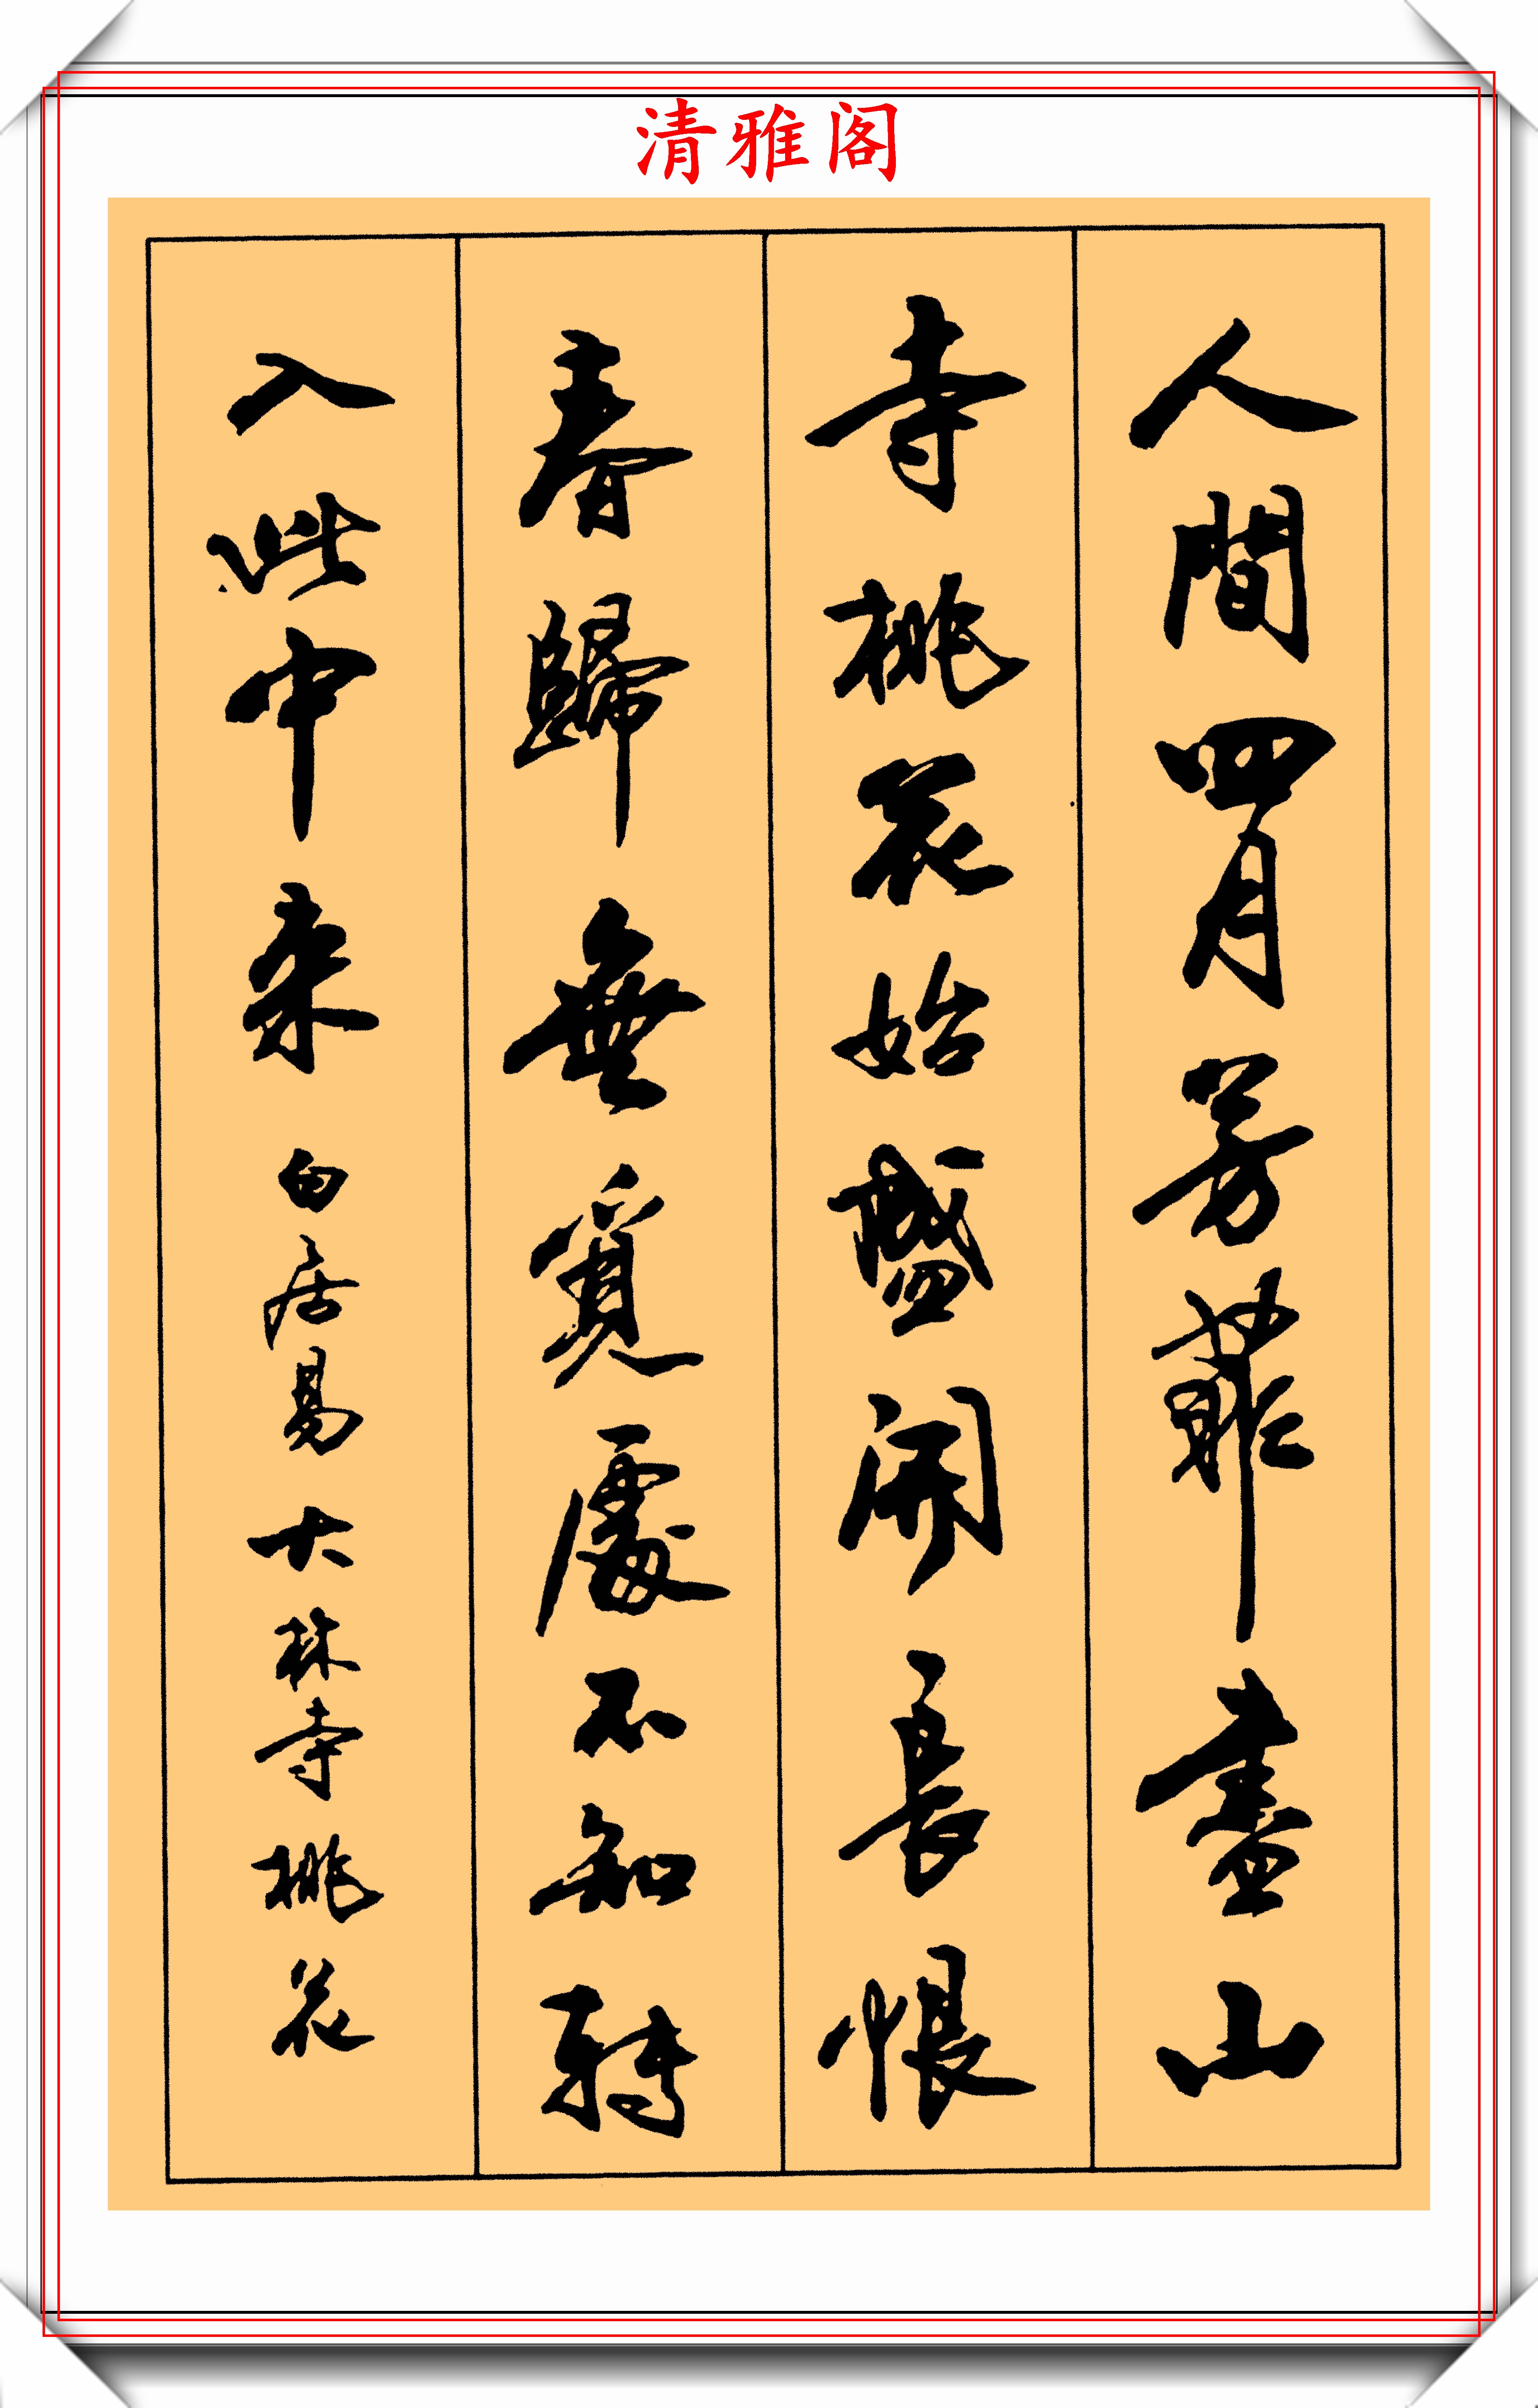 清雅阁
人間四月芳菲盡山
寺桃花始盛開長恨
春歸無覓處不知轉
入此中来 白居易 大林寺桃花